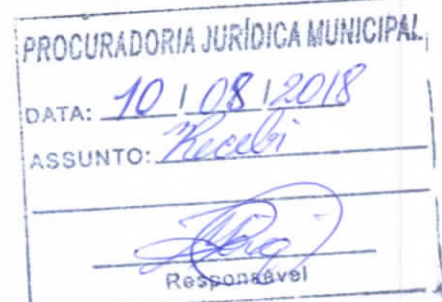 PROCURADORIA JURÍDICA MUNICIPAL
DATA: 10 / 08 / 2018
ASSUNTO: Recebi
Responsável